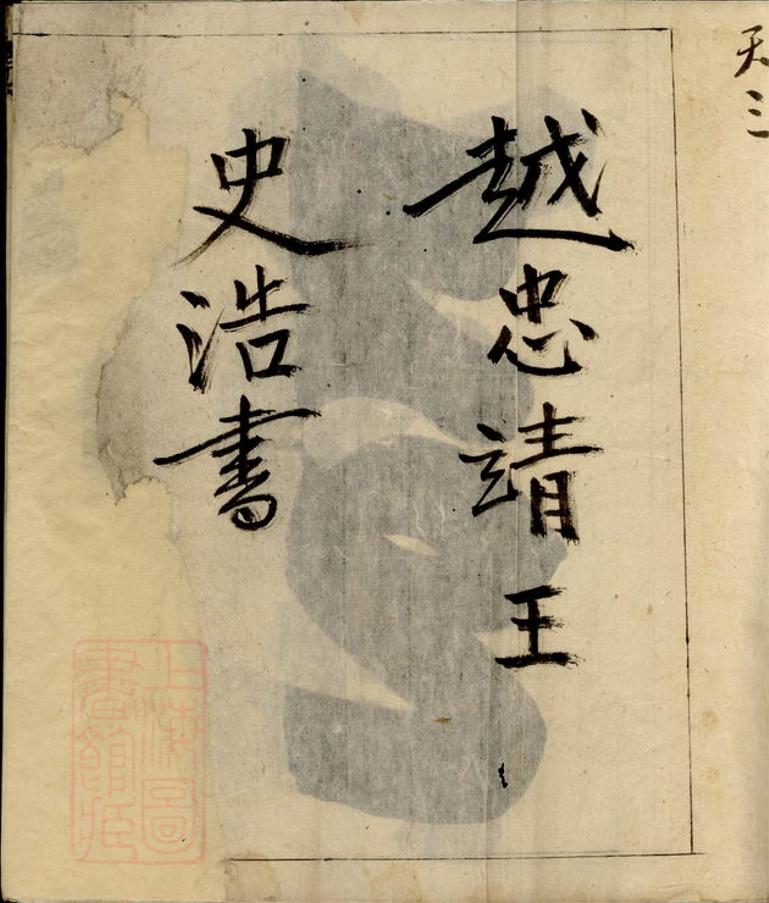 天三
越忠靖王
史浩書
上海圖
書館藏